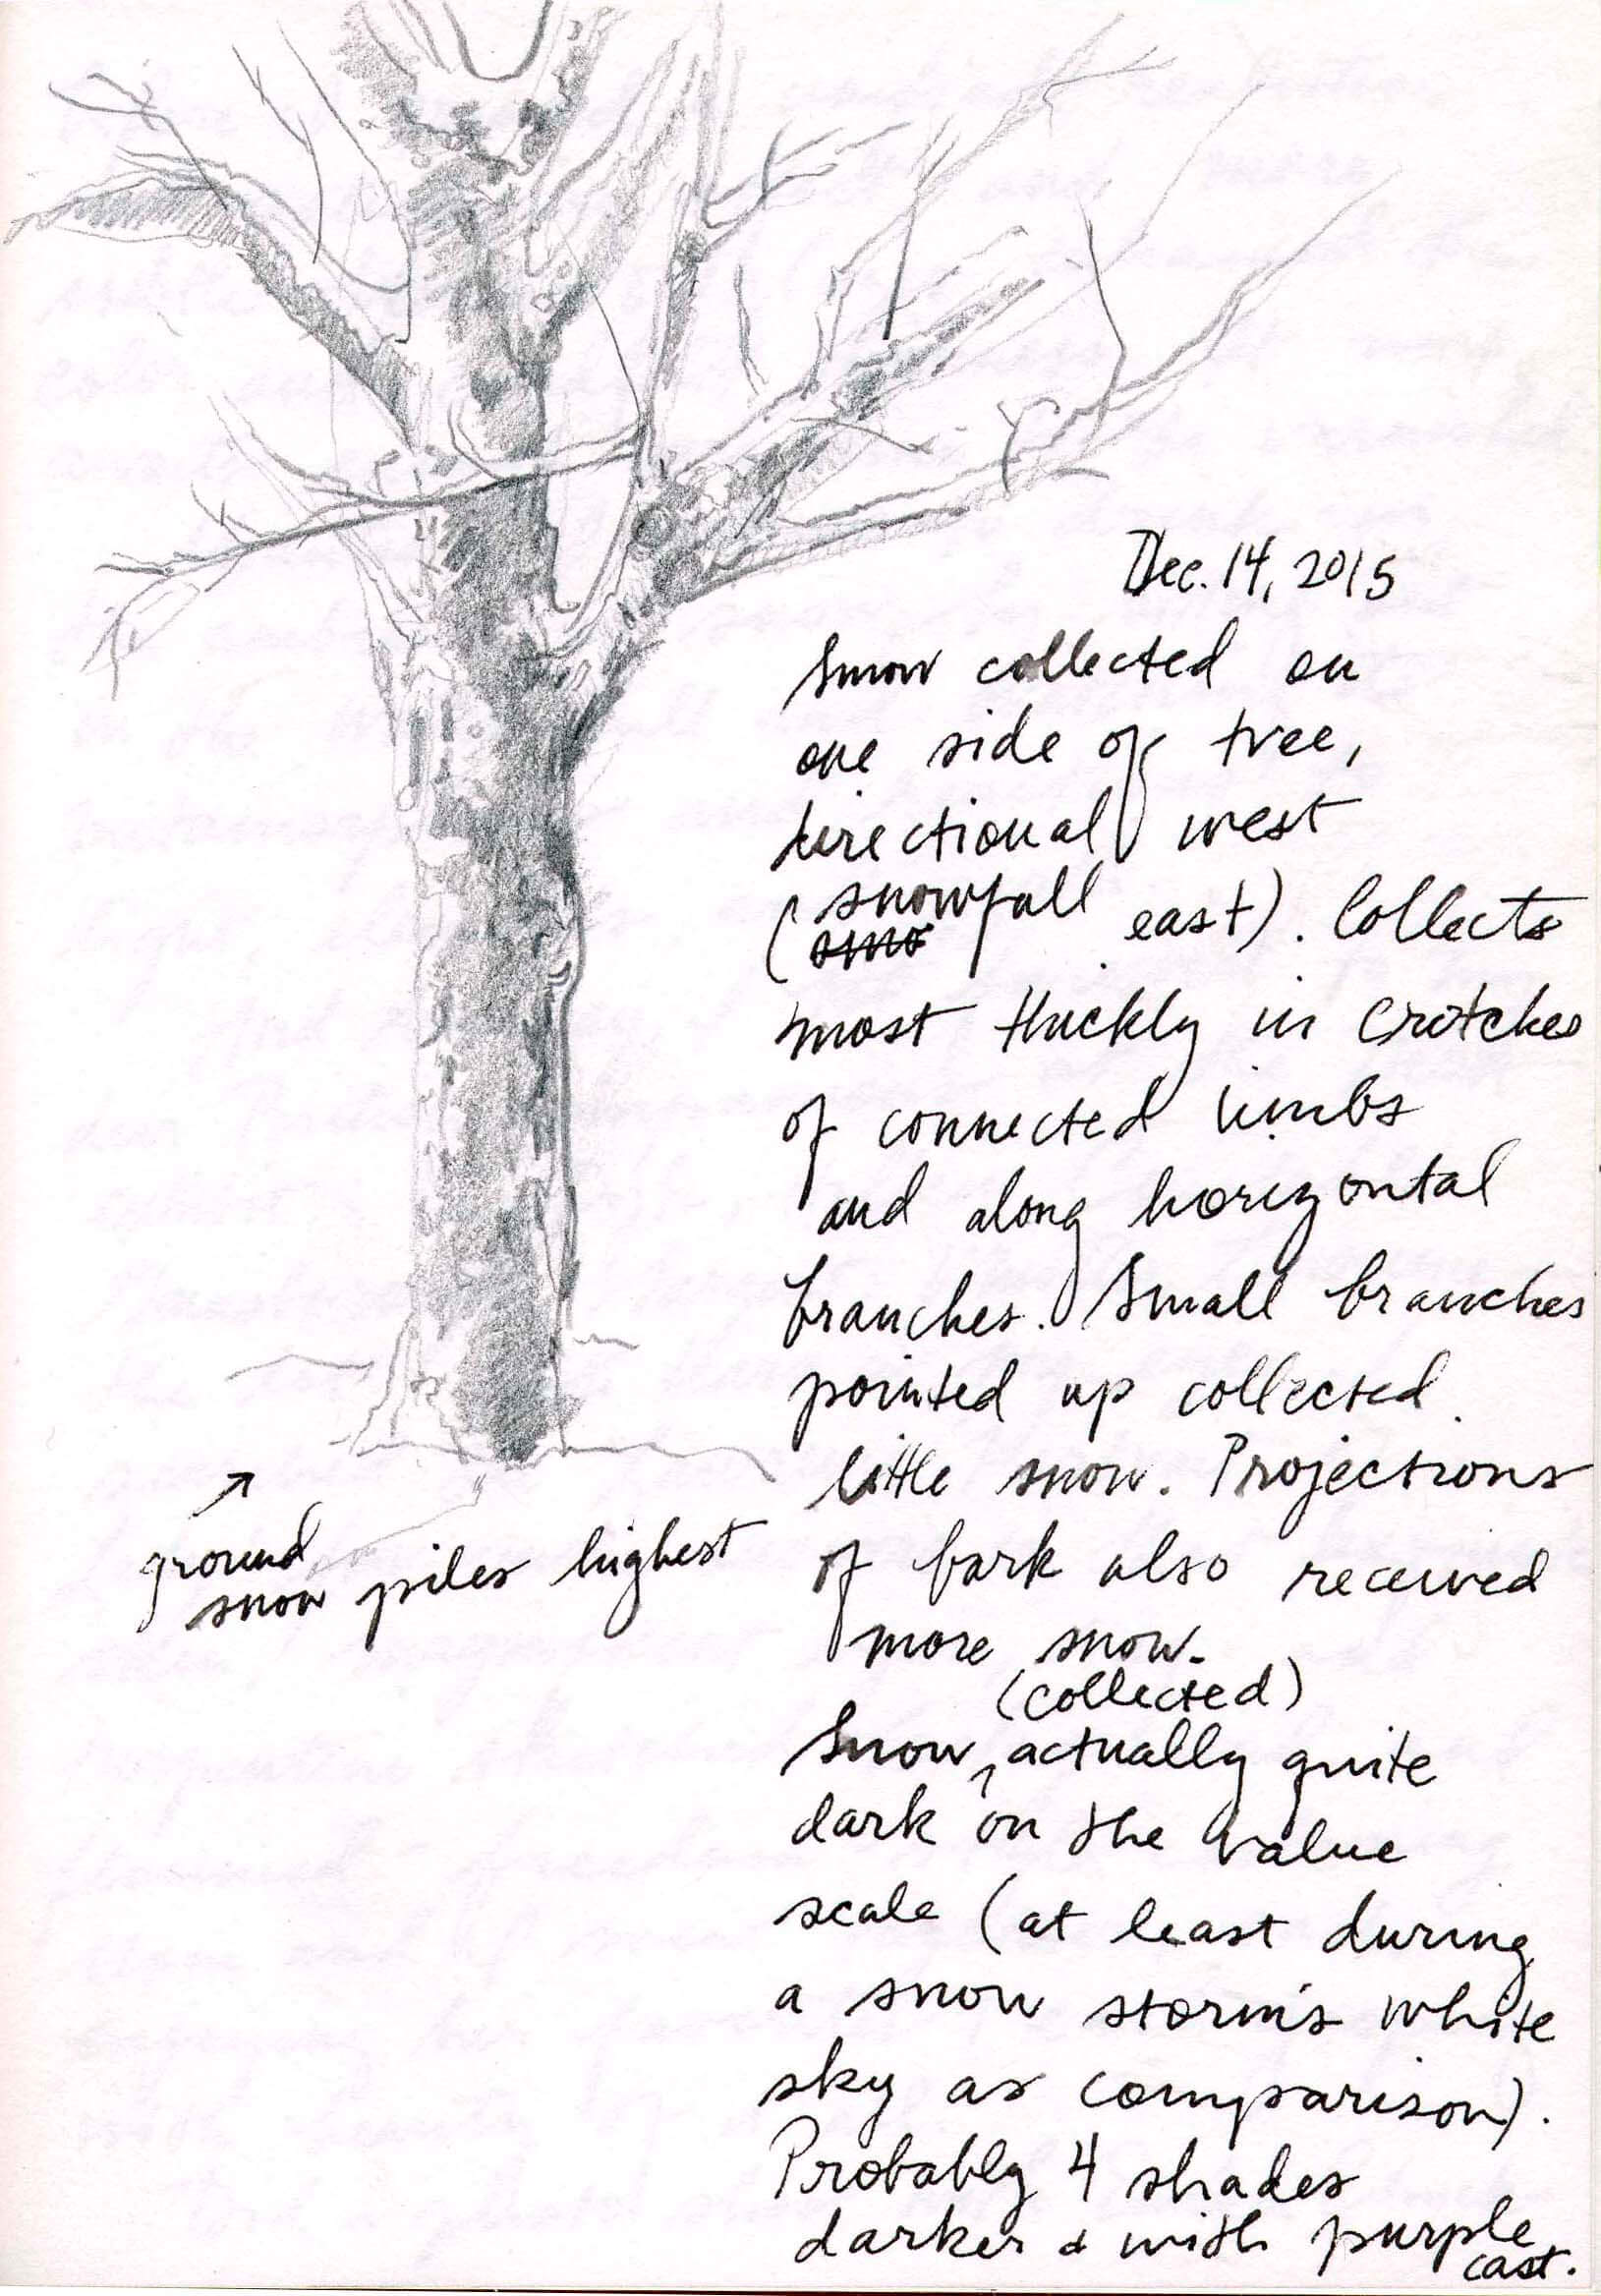 Dec. 14, 2015
Snow collected on
one side of tree,
directional west
(snowfall east). Collects
most thickly in crotches
of connected limbs
and along horizontal
branches. Small branches
pointed up collected
little snow. Projections
of bark also received
more snow.
(collected)
Snow, actually quite
dark on the value
scale (at least during
a snow storm's white
sky as comparison).
Probably 4 shades
darker & with purple
cast.
ground
snow piles highest